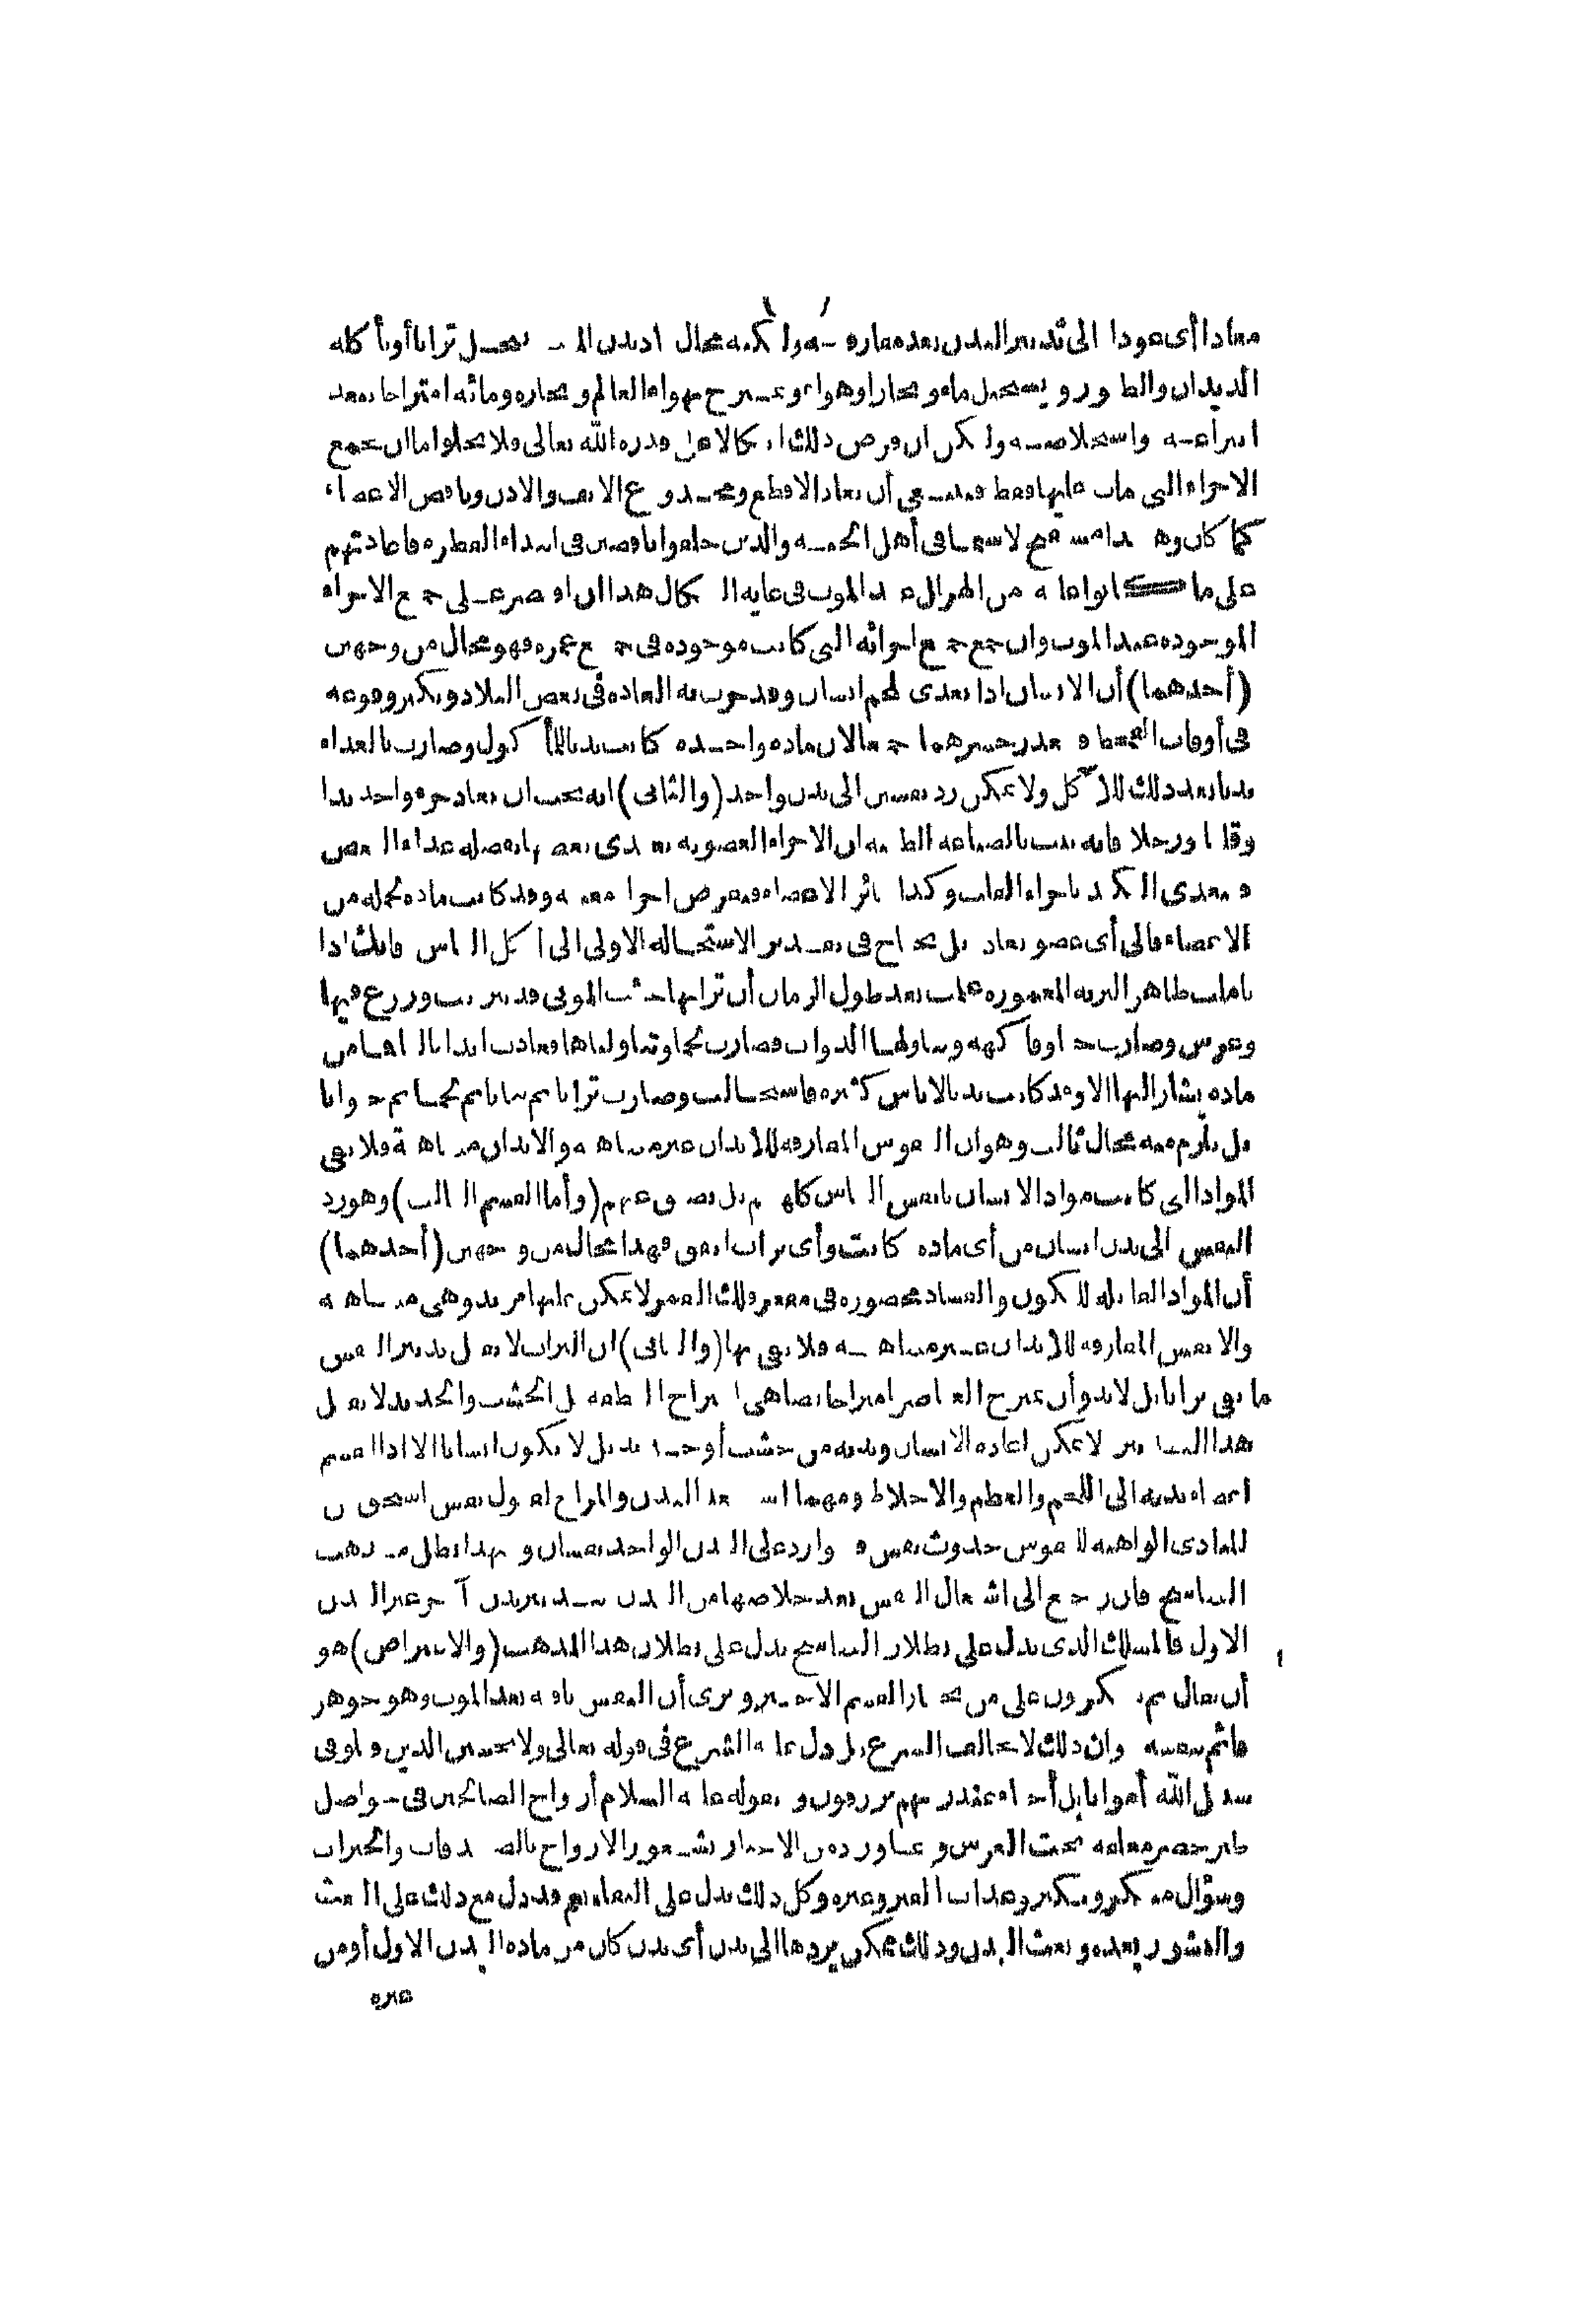 معادا أى عودا الى تدبير البدن بعد مفارقته ولكنه محال اذ بدن الميت ينحل ترابا أو يأكله
الديدان والطيور ويستحيل ماء وبخارا وهواء ويمتزج بهواء العالم وبخاره ومائه امتزاجا يبعد
انتزاعه واستخلاصه ولكن ان فرض ذلك اتكالا على قدرة الله تعالى فلا يخلو اما ان يجمع
الاجزاء التى مات عليها فقط فينبغى أن يعاد الاقطع ومجدوع الانف والاذن وناقص الاعضاء
كما كان وهذا مستقبح لا سيما فى أهل الجنة والذين خلقوا ناقصين فى ابتداء الفطرة فاعادتهم
على ما كانوا عليه من الهزال عند الموت فى غاية النكال هذا ان اقتصر على جمع الاجزاء
الموجودة عند الموت وان جمع جميع اجزائه التى كانت موجودة فى جميع عمره فهو محال من وجهين
(أحدهما) أن الانسان اذا تغذى بلحم انسان وقد جرت به العادة فى بعض البلاد ويكثر وقوعه
فى أوقات القحط فيتعذر حشرهما جميعا لان مادة واحدة كانت بدنا للمأكول وصارت بالغذاء
بدنا بعد ذلك للآكل ولا يمكن رد نفسين الى بدن واحد (والثانى) انه يجب ان يعاد جزء واحد كبدا
وقلبا ويدا ورجلا فانه ثبت بالصناعة الطبية ان الاجزاء العضوية يغتذى بعضها بفضلة غذاء البعض
فيتغذى الكبد باجزاء القلب وكذا سائر الاعضاء فنفرض اجزاء معينة وقد كانت مادة لجملة من
الاعضاء فالى أى عضو يعاد بل لا يحتاج فى تقدير الاستحالة الاولى الى اكل الناس فانك اذا
تأملت ظاهر التربة المعمورة علمت بعد طول الزمان أن ترابها جثث الموتى قد تتربت وزرع فيها
وغرس وصارت حبا وفاكهة وتناولها الدواب فصارت لحما وتناولناها فعادت ابدانا لنا فما من
مادة يشار اليها الا وقد كانت بدنا لاناس كثيرة فاستحالت وصارت ترابا ثم نباتا ثم لحما ثم حيوانا
بل يلزم منه محال ثالث وهو ان النفوس المفارقة للابدان غير متناهية والابدان متناهية فلا تفى
المواد التى كانت مواد الانسان بانفس الناس كلهم بل تضيق عنهم (وأما القسم الثالث) وهو رد
النفس الى بدن انسان من أى مادة كانت وأى تراب اتفق فهذا محال من وجهين (أحدهما)
أن المواد القابلة للكون والفساد محصورة فى مقعر فلك القمر لا يمكن عليها مزيد وهى متناهية
والانفس المفارقة للابدان غير متناهية فلا تفى بها (والثانى) ان التراب لا يقبل تدبير النفس
ما بقى ترابا بل لا بد وأن يمتزج العناصر امتزاجا يضاهى امتزاج النطفة بل الخشب والحديد لا يقبل
هذا التدبير ولا يمكن اعادة الانسان وبدنه من خشب أو حديد بل لا يكون انسانا الا اذا انقسم
اعضاء بدنه الى اللحم والعظم والاخلاط ومهما استعد البدن والمزاج لقبول نفس استحق من
المبادى الواهبة للنفوس حدوث نفس فيتوارد على البدن الواحد نفسان وبهذا بطل مذهب
التناسخ فان رجع الى اشتغال النفس بعد خلاصها من البدن بتدبير بدن آخر غير البدن
الاول فالمسلك الذى يدل على بطلان التناسخ يدل على بطلان هذا المذهب (والاعتراض) هو
أن يقال بم تنكرون على من يختار القسم الاخير ويرى أن النفس باقية بعد الموت وهو جوهر
قائم بنفسه وان ذلك لا يخالف الشرع بل دل عليه الشرع فى قوله تعالى ولا تحسبن الذين قتلوا فى
سبيل الله أمواتا بل أحياء عند ربهم يرزقون وبقوله عليه السلام أرواح الصالحين فى حواصل
طير خضر معلقة تحت العرش وبما ورد من الاخبار بشعور الارواح بالصدقات والخيرات
وسؤال منكر ونكير وعذاب القبر وغيره وكل ذلك يدل على البقاء نعم قد دل مع ذلك على البعث
والنشور بعده وبعث البدن وذلك ممكن بردها الى بدن أى بدن كان من مادة البدن الاول أو من
غيره